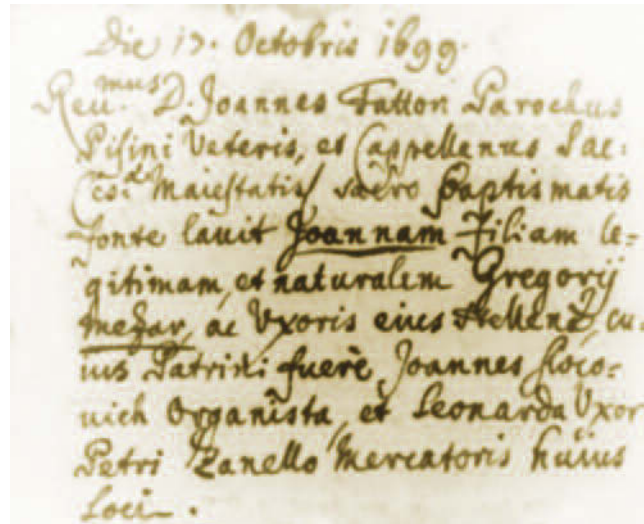 Die 17. Octobris 1699.
Reu.mus D. Joannes Fattori Parochus
Pisini Veteris, et Cappellanus Sac:
Ces. Maiestatis, sacro Baptismatis
fonte lauit Joannam Filiam le=
gitimam, et naturalem Gregorij
mezar, ac Vxoris eius Hellenę, cu=
ius Patrini fuerè Joannes
uich Organista, et Leonarda Vxor
Petri Zanello Mercatoris huius
Loci.